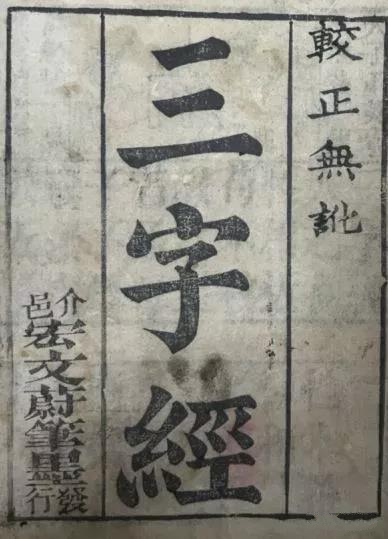 較正無訛
三字經
介邑宏文蔚筆墨發行